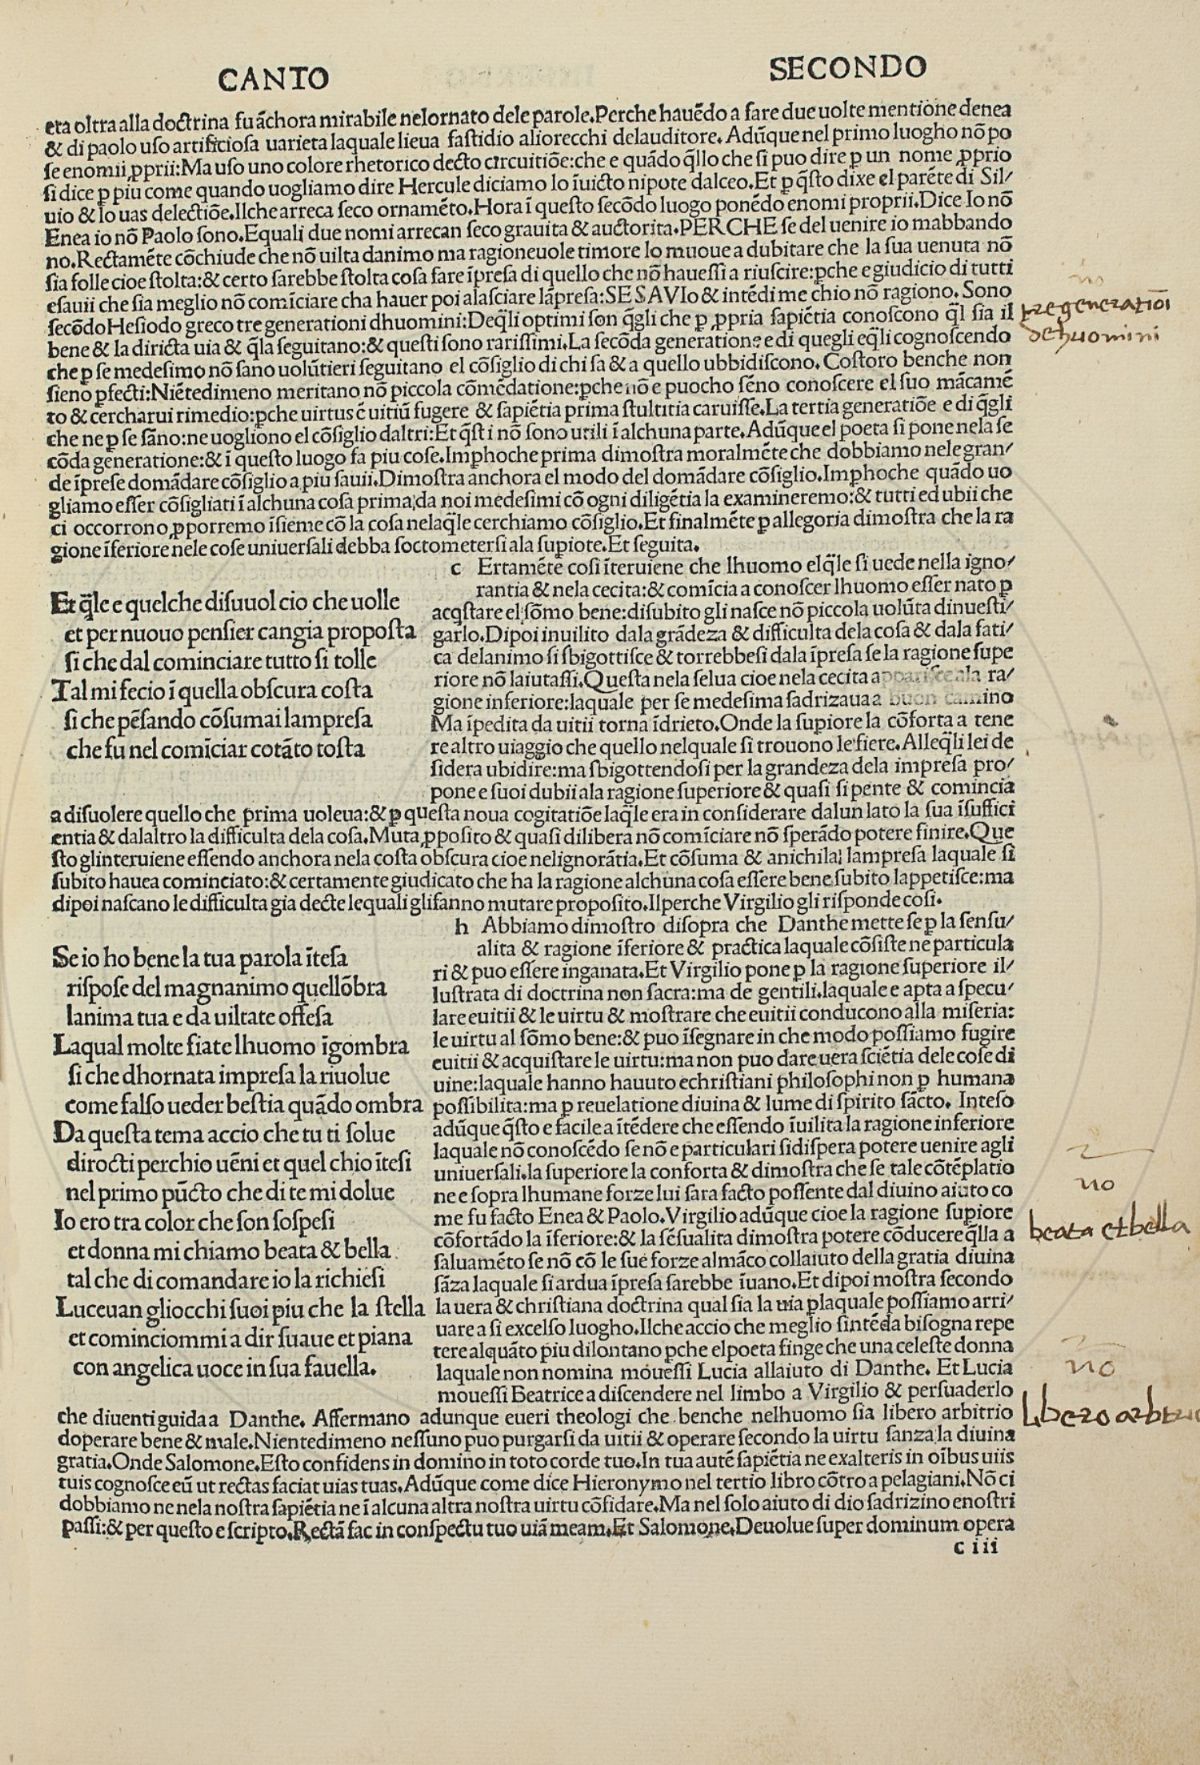 CANTO SECONDO
eta oltra alla doctrina fu ãchora mirabile nelornato dele parole.Perche hauẽdo a fare due uolte mentione denea
& di paolo uſo artificioſa uarieta laquale lieua faſtidio aliorecchi delauditore.Adũque nel primo luogho nõ po
ſe enomii ꝓprii:Ma uſo uno colore rhetorico decto circuitiõe:che e quãdo q̃llo che ſi puo dire ꝑ un nome ꝓprio
ſi dice ꝑ piu come quando uogliamo dire Hercule diciamo lo ĩuicto nipote dalceo.Et ꝑ q̃ſto dixe el parẽte di Sil/
uio & lo uas delectiõe.Ilche arreca ſeco ornamẽto.Hora ĩ queſto ſecõdo luogo ponẽdo enomi proprii.Dice Io nõ
Enea io nõ Paolo ſono.Equali due nomi arrecan ſeco grauita & auctorita.PERCHE ſe del uenire io mabbando
no.Rectamẽte cõchiude che nõ uilta danimo ma ragioneuole timore lo muoue a dubitare che la ſua uenuta nõ
ſia folle cioe ſtolta:& certo ſarebbe ſtolta coſa fare ĩpreſa di quello che nõ haueſſi a riuſcire:pche e giudicio di tutti
eſauii che ſia meglio nõ comĩciare cha hauer poi alaſciare lãpreſa:SE SAVIo & intẽdi me chio nõ ragiono. Sono
ſecõdo Heſiodo greco tre generationi dhuomini:Deq̃li optimi ſon q̃gli che ꝑ ꝓpria ſapiẽtia conoſcono q̃l ſia il
bene & la diricta uia & q̃la ſeguitano:& queſti ſono rariſſimi.La ſecõda generatione e di quegli eq̃li cognoſcendo
che ꝑ ſe medeſimo nõ ſano uolũtieri ſeguitano el cõſiglio di chi ſa & a quello ubbidiſcono. Coſtoro benche non
ſieno ꝑfecti:Niẽtedimeno meritano nõ piccola cõmẽdatione:pche nõ e puocho ſẽno conoſcere el ſuo mãcamẽ
to & cercharui rimedio:pche uirtus ẽ uitiũ fugere & ſapiẽtia prima ſtultitia caruiſſe.La tertia generatiõe e di q̃gli
che ne ꝑ ſe ſãno:ne uogliono el cõſiglio daltri:Et q̃ſti nõ ſono utili ĩ alchuna parte.Adũque el poeta ſi pone nela ſe
cõda generatione:& ĩ queſto luogo fa piu coſe.Imphoche prima dimoſtra moralmẽte che dobbiamo nele gran/
de ĩpreſe domãdare cõſiglio a piu ſauii.Dimoſtra anchora el modo del domãdare cõſiglio.Imphoche quãdo uo
gliamo eſſer cõſigliati ĩ alchuna coſa prima da noi medeſimi cõ ogni diligẽtia la examineremo:& tutti ed ubii che
ci occorrono ꝓporremo ĩſieme cõ la coſa nelaq̃le cerchiamo cõſiglio.Et finalmẽte ꝑ allegoria dimoſtra che la ra
gione ĩferiore nele coſe uniuerſali debba ſoctometerſi ala ſupiote.Et ſeguita.
Et q̃le e quelche diſuuol cio che uolle
et per nuouo penſier cangia propoſta
ſi che dal cominciare tutto ſi tolle
Tal mi fecio ĩ quella obſcura coſta
ſi che pẽſando cõſumai lampreſa
che fu nel comĩciar cotãto toſta
c Ertamẽte coſi ĩteruiene che lhuomo elq̃le ſi uede nella igno/
rantia & nela cecita:& comĩcia a conoſcer lhuomo eſſer nato ꝑ
acq̃ſtare el ſõmo bene:diſubito gli naſce nõ piccola uolũta dinueſti/
garlo.Dipoi inuilito dala grãdeza & difficulta dela coſa & dala fati/
ca delanimo ſi ſbigottiſce & torrebbeſi dala ĩpreſa ſe la ragione ſupe
riore nõ laiutaſſi.Queſta nela ſelua cioe nela cecita appariſce ala ra/
gione inferiore:laquale per ſe medeſima ſadrizaua a buon camino
Ma ĩpedita da uitii torna ĩdrieto.Onde la ſupiore la cõforta a tene
re altro uiaggio che quello nelquale ſi trouono le fiere.Alleq̃li lei de
ſidera ubidire:ma ſbigottendoſi per la grandeza dela impreſa pro/
pone e ſuoi dubii ala ragione ſuperiore & quaſi ſi pente & comincia
a diſuolere quello che prima uoleua:& ꝑ queſta noua cogitatiõe laq̃le era in conſiderare dalun lato la ſua ĩſuffici
entia & dalaltro la difficulta dela coſa.Muta ꝓpoſito & quaſi dilibera nõ comĩciare nõ ſperãdo potere finire.Que
ſto glinteruiene eſſendo anchora nela coſta obſcura cioe nelignorãtia.Et cõſuma & anichila lampreſa laquale ſi
ſubito hauea cominciato:& certamente giudicato che ha la ragione alchuna coſa eſſere bene ſubito lappetiſce:ma
dipoi naſcano le difficulta gia decte lequali gli fanno mutare propoſito.Ilperche Virgilio gli riſponde coſi.
Se io ho bene la tua parola ĩteſa
riſpoſe del magnanimo quellõbra
lanima tua e da uiltate offeſa
Laqual molte fiate lhuomo ĩgombra
ſi che dhornata impreſa la riuolue
come falſo ueder beſtia quãdo ombra
Da queſta tema accio che tu ti ſolue
dirocti perchio uẽni et quel chio ĩteſi
nel primo pũcto che di te mi dolue
Io ero tra color che ſon ſoſpeſi
et donna mi chiamo beata & bella
tal che di comandare io la richieſi
Luceuan gliocchi ſuoi piu che la ſtella
et cominciommi a dir ſuaue et piana
con angelica uoce in ſua fauella.
h Abbiamo dimoſtro diſopra che Danthe mette ſe ꝑ la ſenſu/
alita & ragione ĩferiore & practica laquale cõſiſte ne particula
ri & puo eſſere inganata.Et Virgilio pone ꝑ la ragione ſuperiore il/
luſtrata di doctrina non ſacra:ma de gentili.laquale e apta a ſpecu/
lare euitii & le uirtu & moſtrare che euitii conducono alla miſeria:
le uirtu al ſõmo bene:& puo ĩſegnare in che modo poſſiamo fugire
euitii & acquiſtare le uirtu:ma non puo dare uera ſciẽtia dele coſe di
uine:laquale hanno hauuto echriſtiani philoſophi non ꝑ humana
poſſibilita:ma ꝑ reuelatione diuina & lume di ſpirito ſãcto. Inteſo
adũque q̃ſto e facile a ĩtẽdere che eſſendo ĩuilita la ragione inferiore
laquale nõ conoſcẽdo ſe nõ e particulari ſidiſpera potere uenire agli
uniuerſali.la ſuperiore la conforta & dimoſtra che ſe tale cõtẽplatio
ne e ſopra lhumane forze lui ſara facto poſſente dal diuino aiuto co
me fu facto Enea & Paolo.Virgilio adũque cioe la ragione ſupiore
cõfortãdo la ĩferiore:& la ſẽſualita dimoſtra potere cõducere q̃lla a
ſaluamẽto ſe nõ cõ le ſue forze almãco collaiuto della gratia diuina
ſãza laquale ſi ardua ĩpreſa ſarebbe ĩuano.Et dipoi moſtra ſecondo
la uera & chriſtiana doctrina qual ſia la uia plaquale poſſiamo arri/
uare a ſi excelſo luogho.Ilche accio che meglio ſintẽda biſogna repe
tere alquãto piu dilontano pche elpoeta finge che una celeſte donna
laquale non nomina moueſſi Lucia allaiuto di Danthe. Et Lucia
moueſſi Beatrice a diſcendere nel limbo a Virgilio & perſuaderlo
che diuenti guida a Danthe. Affermano adunque eueri theologi che benche nelhuomo ſia libero arbitrio
doperare bene & male.Nientedimeno neſſuno puo purgarſi da uitii & operare ſecondo la uirtu ſanza la diuina
gratia.Onde Salomone.Eſto confidens in domino in toto corde tuo.In tua autẽ ſapiẽtia ne exalteris in oĩbus uiis
tuis cognoſce eũ ut rectas faciat uias tuas.Adũque come dice Hieronymo nel tertio libro cõtro a pelagiani.Nõ ci
dobbiamo ne nela noſtra ſapiẽtia ne ĩ alcuna altra noſtra uirtu cõfidare.Ma nel ſolo aiuto di dio ſadrizino enoſtri
paſſi:& per queſto e ſcripto.Rectã fac in conſpectu tuo uiã meam.Et Salomone.Deuolue ſuper dominum opera
c iii
no
tre generatiõi
de huomini
no
beata et bella
no
libero arbitrio